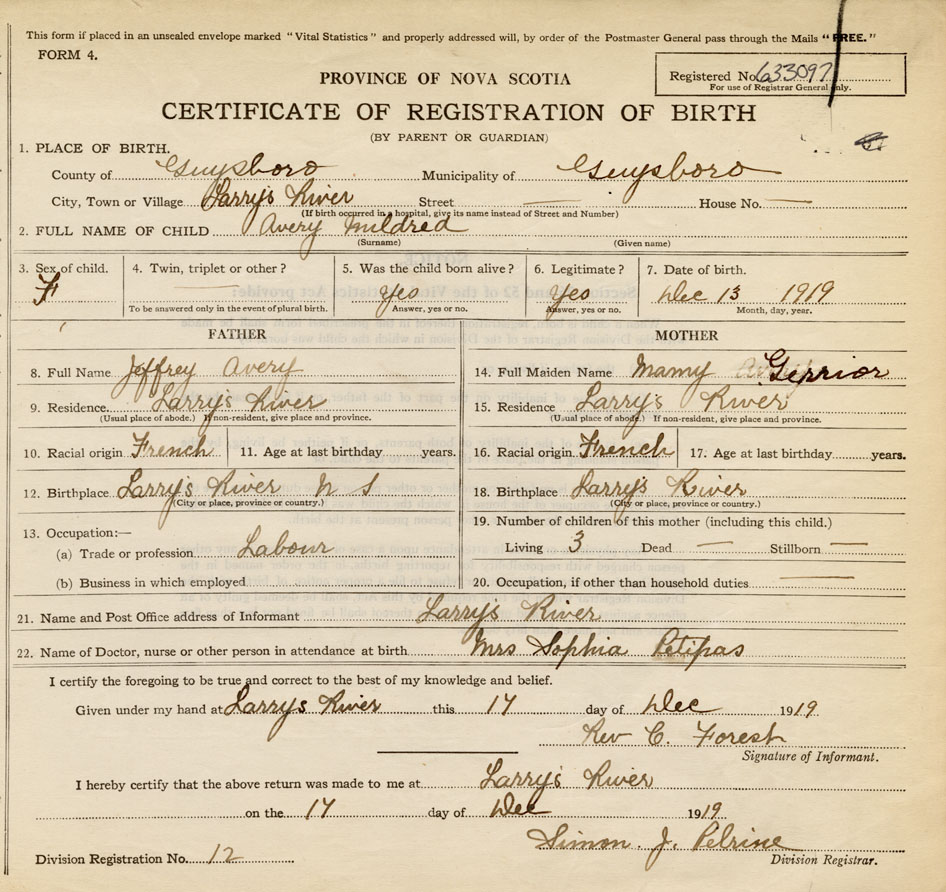 This form if placed in an unsealed envelope marked "Vital Statistics" and properly addressed will, by order of the Postmaster General pass through the Mails "FREE."
FORM 4.
PROVINCE OF NOVA SCOTIA
Registered No. 633097
For use of Registrar General only.
CERTIFICATE OF REGISTRATION OF BIRTH
(BY PARENT OR GUARDIAN)
1. PLACE OF BIRTH.
County of Guysboro Municipality of Guysboro
City, Town or Village Larry's River Street — House No. —
(If birth occurred in a hospital, give its name instead of Street and Number)
2. FULL NAME OF CHILD Avery Mildred
(Surname) (Given name)
3. Sex of child. 4. Twin, triplet or other? 5. Was the child born alive? 6. Legitimate? 7. Date of birth.
F — Yes Yes Dec 13 1919
To be answered only in the event of plural birth. Answer, yes or no. Answer, yes or no. Month, day, year.
FATHER MOTHER
8. Full Name Jeffrey Avery 14. Full Maiden Name Mamy Gerrior
9. Residence Larry's River 15. Residence Larry's River
(Usual place of abode.) If non-resident, give place and province. (Usual place of abode.) If non-resident, give place and province.
10. Racial origin French 11. Age at last birthday years. 16. Racial origin French 17. Age at last birthday years.
12. Birthplace Larry's River N S 18. Birthplace Larry's River
(City or place, province or country.) (City or place, province or country.)
13. Occupation:— 19. Number of children of this mother (including this child.)
(a) Trade or profession Labour Living 3 Dead — Stillborn —
(b) Business in which employed 20. Occupation, if other than household duties —
21. Name and Post Office address of Informant Larry's River
22. Name of Doctor, nurse or other person in attendance at birth Mrs Sophia Petipas
I certify the foregoing to be true and correct to the best of my knowledge and belief.
Given under my hand at Larrys River this 17 day of Dec 1919
Rev C. Forest
Signature of Informant.
I hereby certify that the above return was made to me at Larry's River
on the 17 day of Dec 1919
Simon J. Pelrine
Division Registration No. 12 Division Registrar.